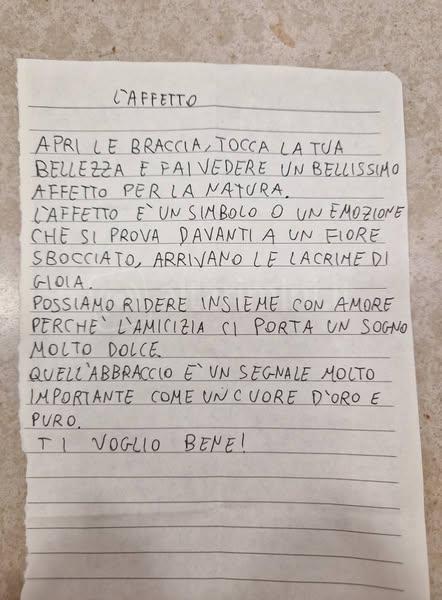 L'AFFETTO
APRI LE BRACCIA, TOCCA LA TUA
BELLEZZA E FAI VEDERE UN BELLISSIMO
AFFETTO PER LA NATURA.
L'AFFETTO E' UN SIMBOLO O UN EMOZIONE
CHE SI PROVA DAVANTI A UN FIORE
SBOCCIATO, ARRIVANO LE LACRIME DI
GIOIA.
POSSIAMO RIDERE INSIEME CON AMORE
PERCHE' L'AMICIZIA CI PORTA UN SOGNO
MOLTO DOLCE.
QUELL'ABBRACCIO E' UN SEGNALE MOLTO
IMPORTANTE COME UN CUORE D'ORO E
PURO.
TI VOGLIO BENE!